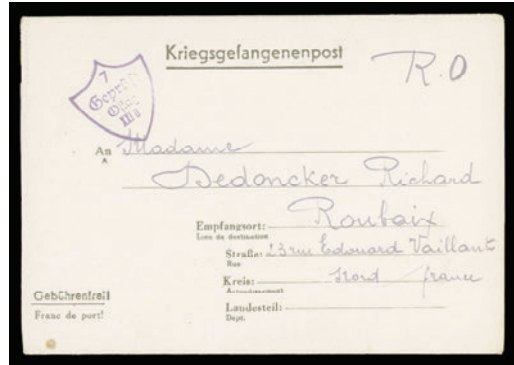 Kriegsgefangenenpost
R.O
7
Geprüft
IIIa
An Madame
A
Dedoncker Richard
Empfangsort: Roubaix
Lieu de destination
Straße: 23 rue Edouard Vaillant
Rue
Kreis: Nord france
Arrondissement
Landesteil:
Dept.
Gebührenfrei!
Franc de port!